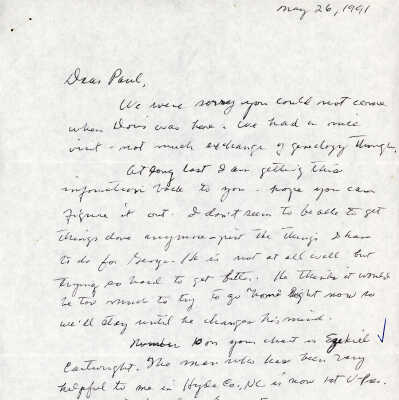 May 26, 1991
Dear Paul,
We were sorry you could not come
when Doris was here. We had a nice
visit - not much exchange of genealogy though.
At long last I am getting this
information back to you - hope you can
figure it out. I don't seem to be able to get
things done anymore - just the things I have
to do for George. He is not at all well but
trying so hard to get better. He thinks it would
be too much to try to go "home" right now so
we'll stay until he changes his mind.
Number 10 on your chart is Ezekiel
Cartwright. The man who has been very
helpful to me in Hyde Co, NC is now 1st V-Pres.